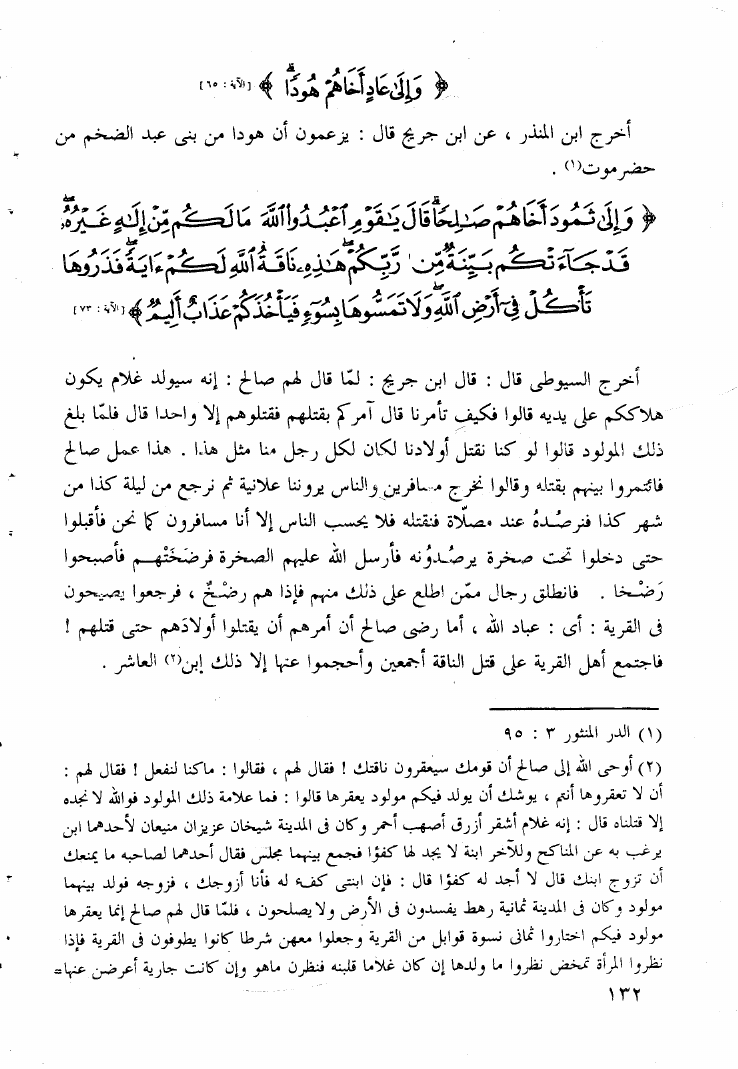 ﴿ وَإِلَىٰ عَادٍ أَخَاهُمْ هُودًا ﴾ [الآية : ٦٥]
أخرج ابن المنذر ، عن ابن جريج قال : يزعمون أن هودا من بنى عبد الضخم من
حضرموت(١) .
﴿ وَإِلَىٰ ثَمُودَ أَخَاهُمْ صَٰلِحًا ۗ قَالَ يَٰقَوْمِ ٱعْبُدُوا۟ ٱللَّهَ مَا لَكُم مِّنْ إِلَٰهٍ غَيْرُهُۥ ۖ
قَدْ جَآءَتْكُم بَيِّنَةٌ مِّن رَّبِّكُمْ ۖ هَٰذِهِۦ نَاقَةُ ٱللَّهِ لَكُمْ ءَايَةً ۖ فَذَرُوهَا
تَأْكُلْ فِىٓ أَرْضِ ٱللَّهِ ۖ وَلَا تَمَسُّوهَا بِسُوٓءٍ فَيَأْخُذَكُمْ عَذَابٌ أَلِيمٌ ﴾ [الآية : ٧٣]
أخرج السيوطى قال : قال ابن جريج : لمّا قال لهم صالح : إنه سيولد غلام يكون
هلاككم على يديه قالوا فكيف تأمرنا قال آمركم بقتلهم فقتلوهم إلا واحدا قال فلمّا بلغ
ذلك المولود قالوا لو كنا نقتل أولادنا لكان لكل رجل منا مثل هذا . هذا عمل صالح
فائتمروا بينهم بقتله وقالوا نخرج مسافرين والناس يروننا علانية ثم نرجع من ليلة كذا من
شهر كذا فنرصُدهُ عند مصلّاة فنقتله فلا يحسب الناس إلا أنا مسافرون كما نحن فأقبلوا
حتى دخلوا تحت صخرة يرصُدوُنه فأرسل الله عليهم الصخرة فرضَخَتْهـم فأصبحوا
رَضْخا . فانطلق رجال ممّن اطلع على ذلك منهم فإذا هم رضْخٌ ، فرجعوا يصيحون
فى القرية : أى : عباد الله ، أما رضى صالح أن أمرهم أن يقتلوا أولادَهم حتى قتلهم !
فاجتمع أهل القرية على قتل الناقة أجمعين وأحجموا عنها إلا ذلك إبن(٢) العاشر .
(١) الدر المنثور ٣ : ٩٥
(٢) أوحى الله إلى صالح أن قومك سيعقرون ناقتك ! فقال لهم ، فقالوا : ماكنا لنفعل ! فقال لهم :
أن لا تعقروها أنتم ، يوشك أن يولد فيكم مولود يعقرها قالوا : فما علامة ذلك المولود فوالله لا نجده
إلا قتلناه قال : إنه غلام أشقر أزرق أصهب أحمر وكان فى المدينة شيخان عزيزان منيعان لأحدهما ابن
يرغب به عن المناكح وللآخر ابنة لا يجد لها كفؤا فجمع بينهما مجلس فقال أحدهما لصاحبه ما يمنعك
أن تزوج ابنك قال لا أجد له كفؤا قال : فإن ابنتى كفء له فأنا أزوجك ، فزوجه فولد بينهما
مولود وكان فى المدينة ثمانية رهط يفسدون فى الأرض ولا يصلحون ، فلمّا قال لهم صالح إنما يعقرها
مولود فيكم اختاروا ثمانى نسوة قوابل من القرية وجعلوا معهن شرطا كانوا يطوفون فى القرية فإذا
نظروا المرأة تمخض نظروا ما ولدها إن كان غلاما قلبنه فنظرن ماهو وإن كانت جارية أعرضن عنها=
١٣٢